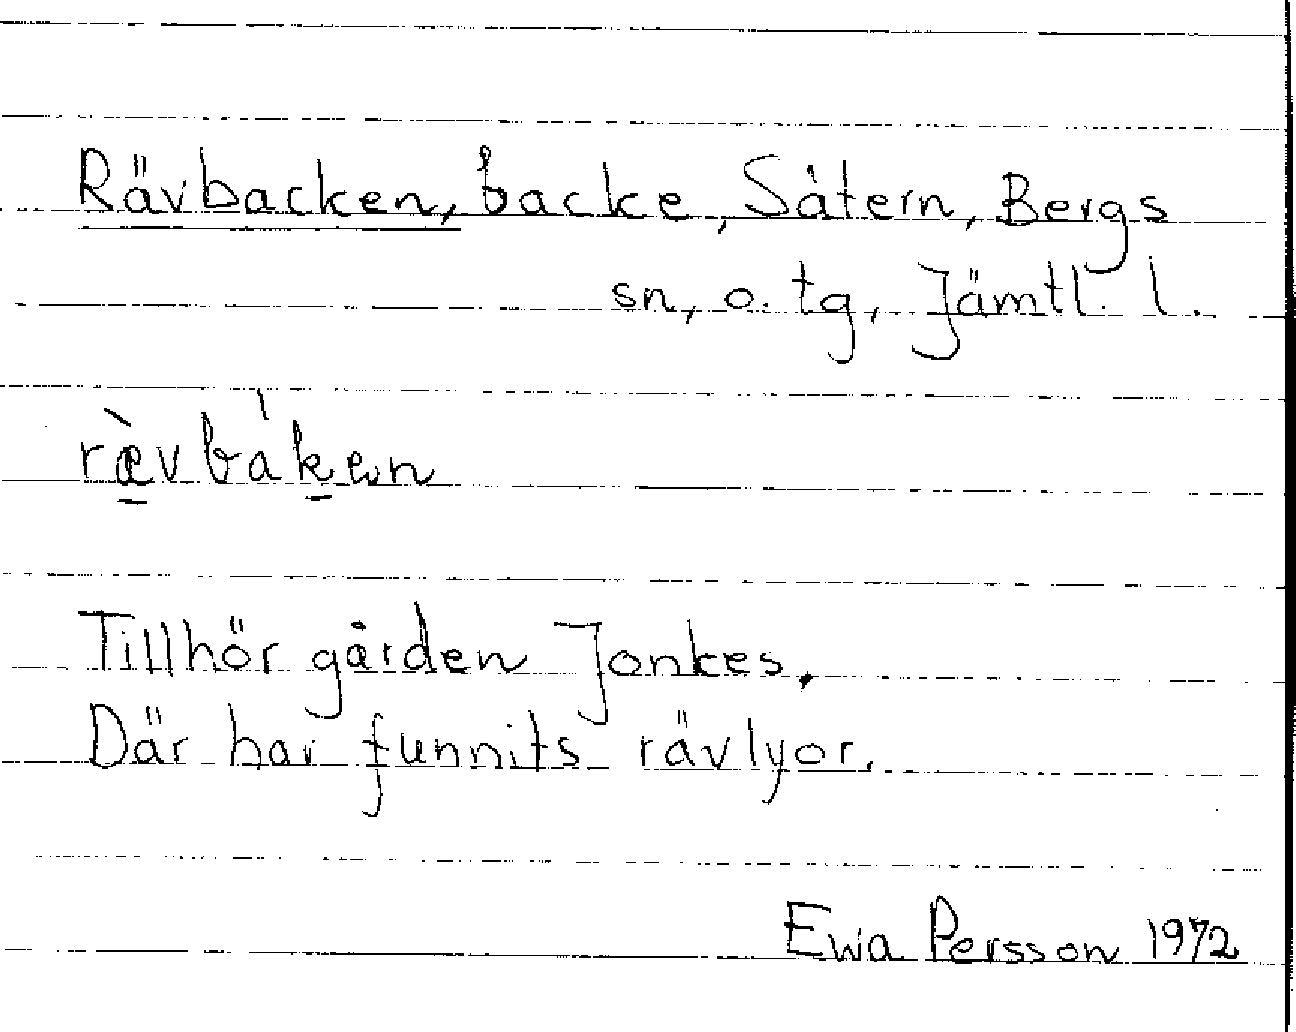 Rävbacken, backe, Såtern, Bergs
sn, o. tg, Jämtl. l.
ræ̀vba̍ken
Tillhör gården Jonkes.
Där har funnits rävlyor.
Ewa Persson 1972